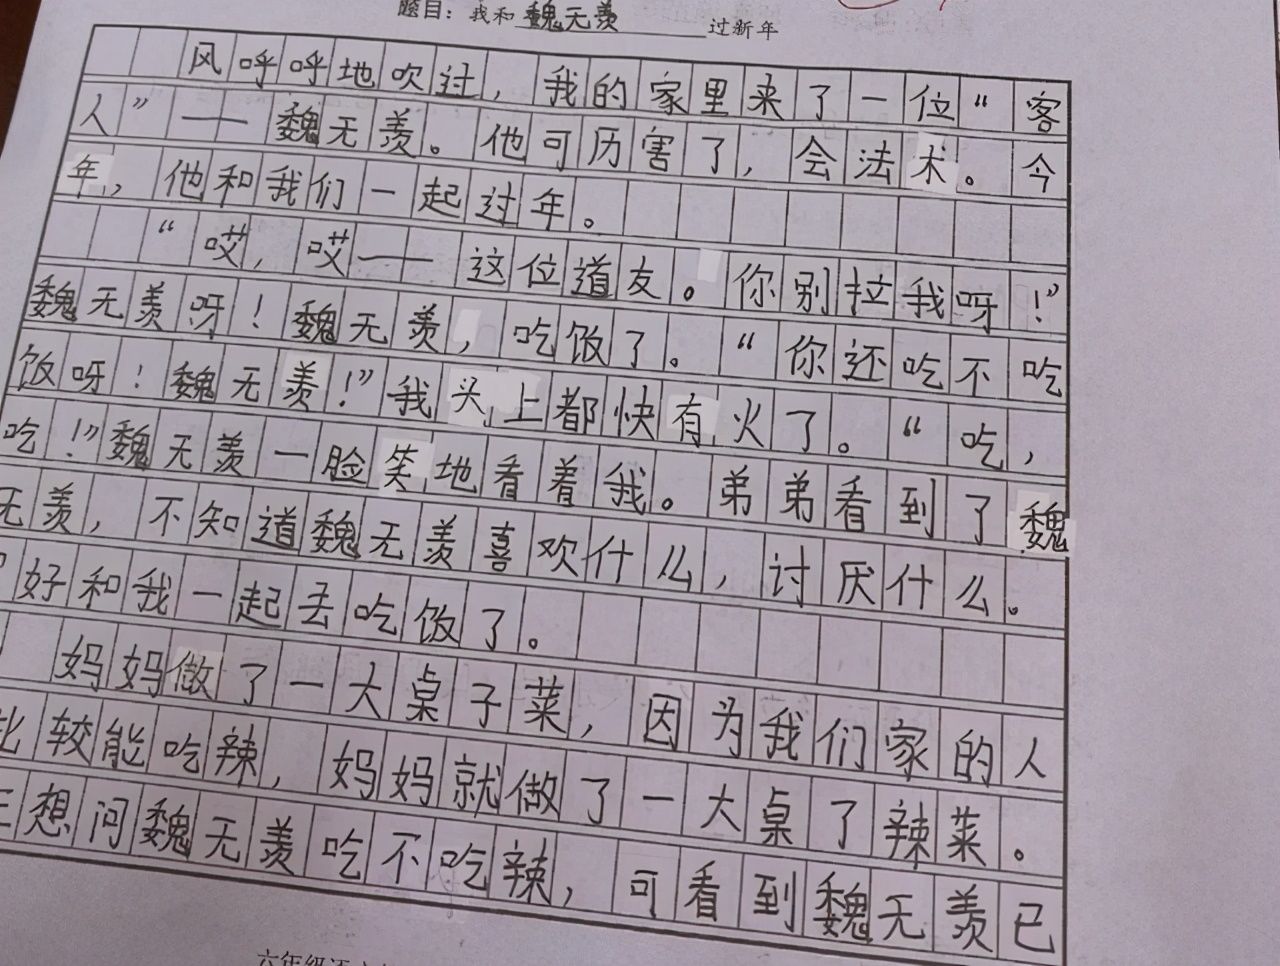 题目：我和魏无羡过新年
风呼呼地吹过，我的家里来了一位“客
人”——魏无羡。他可历害了，会法术。今
年，他和我们一起过年。
“哎，哎——这位道友。你别拉我呀！”
魏无羡呀！魏无羡，吃饭了。“你还吃不吃
饭呀！魏无羡！”我头上都快有火了。“吃，
吃！”魏无羡一脸笑地看着我。弟弟看到了魏
无羡，不知道魏无羡喜欢什么，讨厌什么。
好和我一起去吃饭了。
妈妈做了一大桌子菜，因为我们家的人
比较能吃辣，妈妈就做了一大桌了辣菜。
想问魏无羡吃不吃辣，可看到魏无羡已
六年级